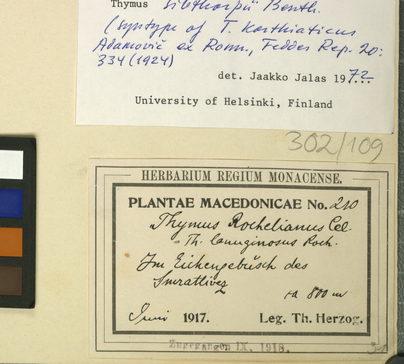 Thymus Sibthorpii Benth.
(syntype of T. Korthiaticus
Adamović ex Ronn., Feddes Rep. 20:
334 (1924)
det. Jaakko Jalas 1972
University of Helsinki, Finland
302/109
HERBARIUM REGIUM MONACENSE.
PLANTAE MACEDONICAE No. 210
Thymus Rochelianus Cel.
= Th. lanuginosus Roch.
Im Eichengebüsch des
ca 800 m
Juni 1917. Leg. Th. Herzog.
Zugegangen IX. 1918.